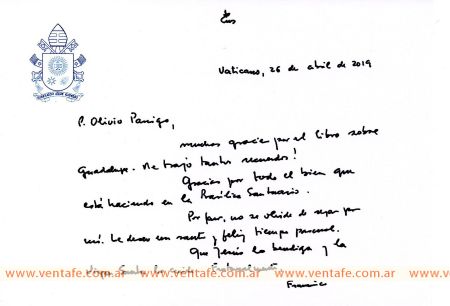 Vaticano, 26 de abril de 2019
P. Olivio
muchas gracias por el libro sobre
Guadalupe. Me trajo tantos recuerdos!
Gracias por todo el bien que
está haciendo en la Basílica Santuario.
Por favor, no se olvide de rezar por
mí. Le deseo un santo y feliz tiempo pascual.
Que Jesús lo bendiga y la
Virgen Santa lo cuide. Fraternalmente
www.ventafe.com.ar www.ventafe.com.ar www.ventafe.com.ar www.ventafe.com.ar
Francisco